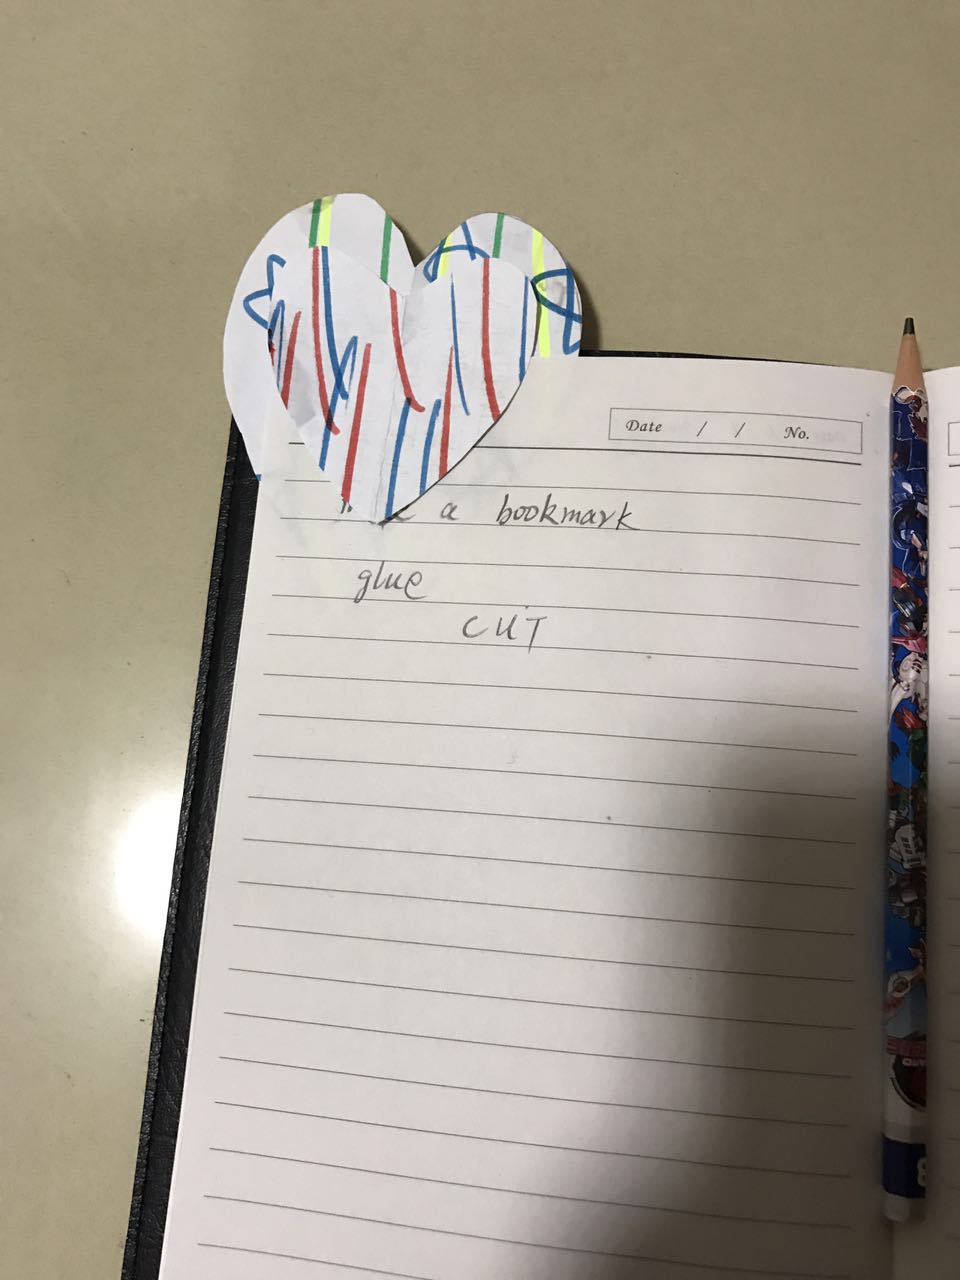 Date / / No.
a bookmark
glue
CUT